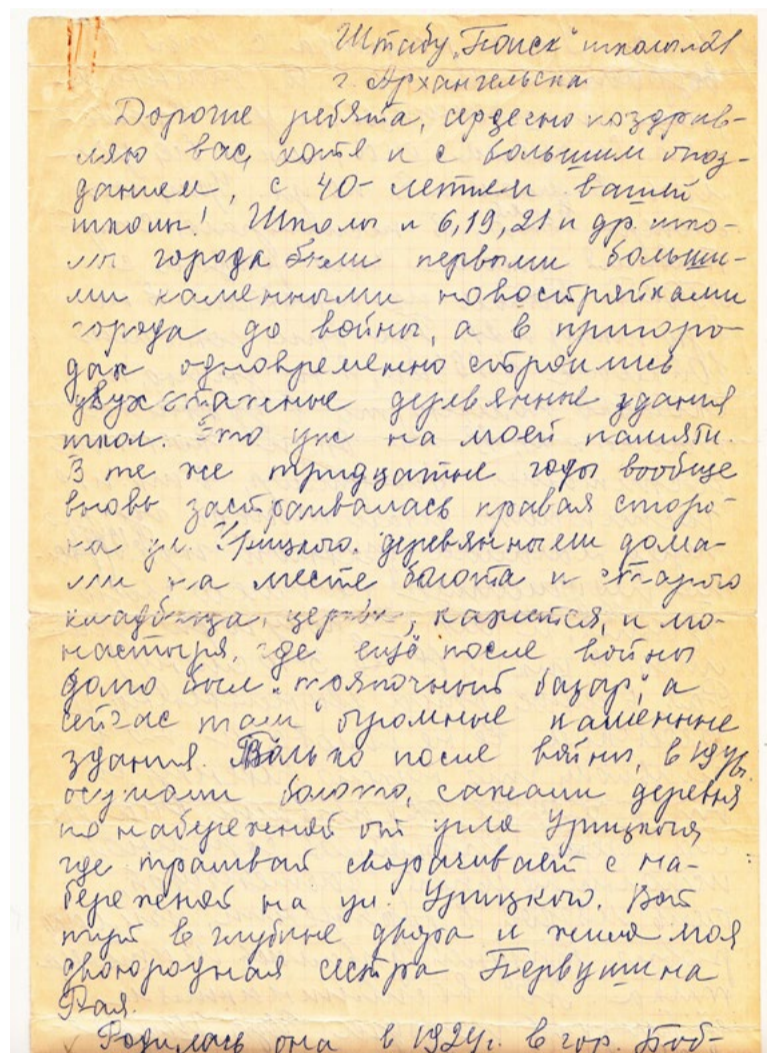 Штабу „Поиск" школы № 21
г. Архангельска
Дорогие ребята, сердечно поздрав-
ляю вас, хотя и с большим опоз-
данием, с 40-летием вашей
школы! Школы № 6, 19, 21 и др. шко-
лы города были первыми больши-
ми каменными новостройками
города до войны, а в пригоро-
дах одновременно строились
двухэтажные деревянные здания
школ. Это уже на моей памяти.
В те же тридцатые годы вообще
вновь застраивалась правая сторо-
на ул. Урицкого. деревянными дома-
ми на месте болота и старого
кладбища, церкви, кажется, и мо-
настыря, где ещё после войны
долго был „тряпочный базар", а
сейчас там огромные каменные
здания. Только после войны, в 1946г.
осушали болото, сажали деревья
по набережной от угла Урицкого
где трамвай сворачивает с на-
бережной на ул. Урицкого. Вот
тут в глубине двора и жила моя
двоюродная сестра Первушина
Рая.
Родилась она в 1924г. в гор. Боб-